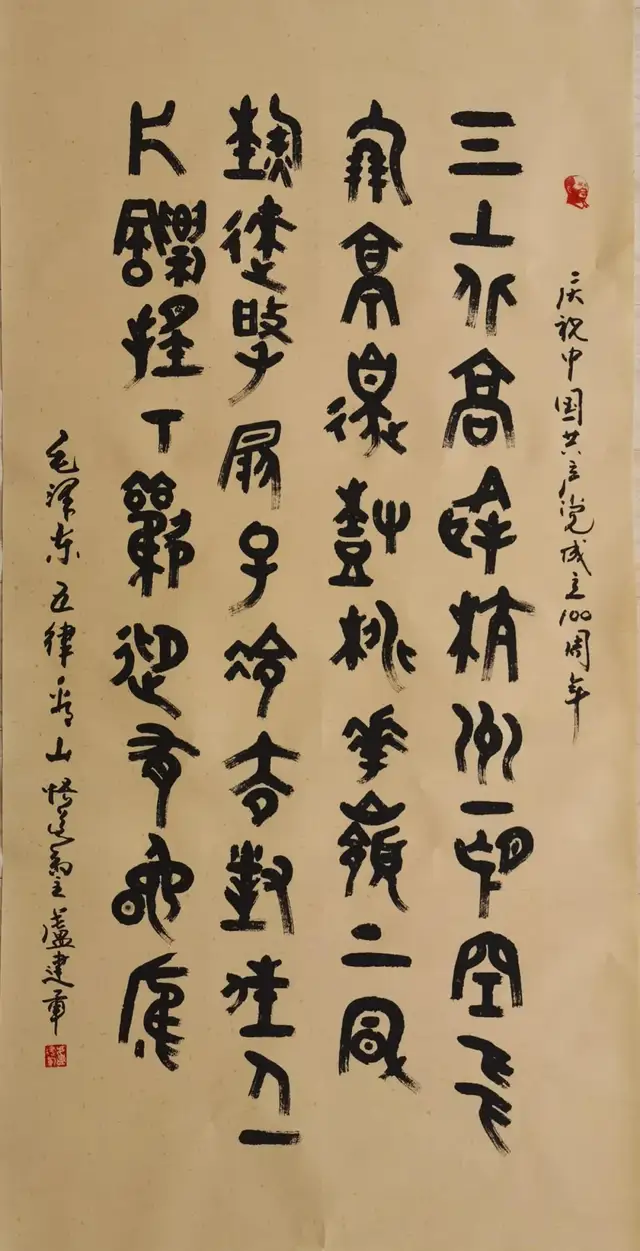 庆祝中国共产党成立100周年
三上北高峰杭州一望空飞
凤亭边树桃花岭上风
热来寻扇子冷去对佳人一
片飘飖下欢迎有晚鹰
毛泽东五律看山 悟道斋主盧建军